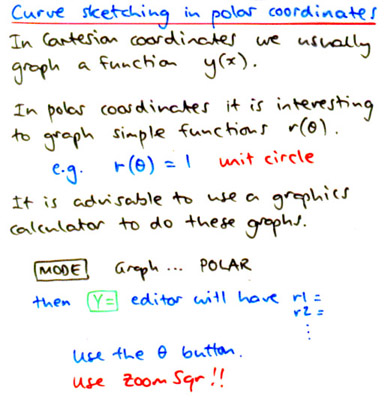 Curve sketching in polar coordinates
In Cartesian coordinates we usually
graph a function y(x).
In polar coordinates it is interesting
to graph simple functions r(θ).
e.g. r(θ) = 1 unit circle
It is advisable to use a graphics
calculator to do these graphs.
MODE Graph ... POLAR
then Y= editor will have r1 =
r2 =
⋮
Use the θ button.
Use ZoomSqr!!